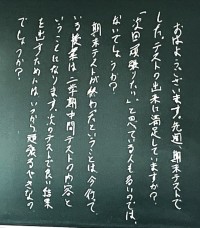 おはようございます。先週、期末テストで
した。テストの出来に満足していますか？
「次回頑張りたい」と思べている人も多いのでは
ないでしょうか？
期末テストが終わったということは、今行って
いる授業は二学期中間テストの内容と
いうことになります。次のテストで良い結果
を出すためには、いつから頑張るべきなの
でしょうか？